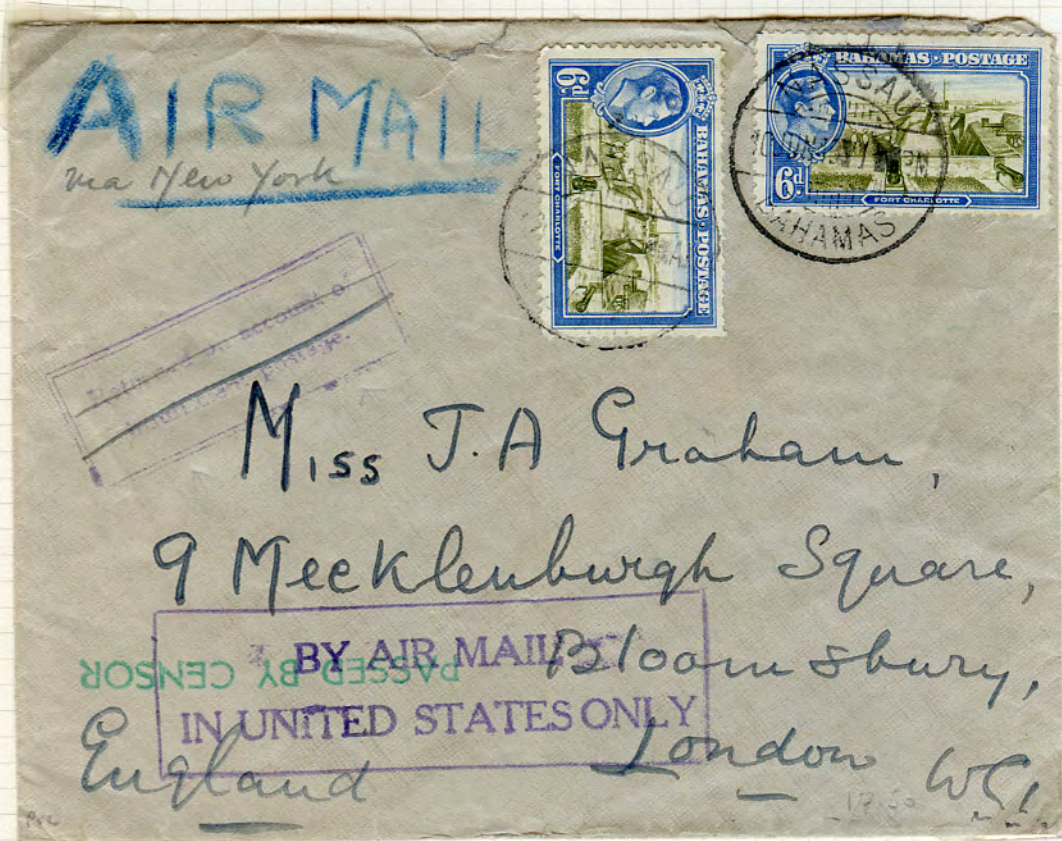 AIR MAIL
via New York
6d.
BAHAMAS · POSTAGE
FORT CHARLOTTE
BAHAMAS · POSTAGE
6d.
FORT CHARLOTTE
NASSAU
NASSAU
BAHAMAS
on account of
postage.
Miss J.A Graham,
9 Mecklenburgh Square,
BY AIR MAIL
Bloomsbury,
PASSED BY CENSOR
IN UNITED STATES ONLY
London WC1
England